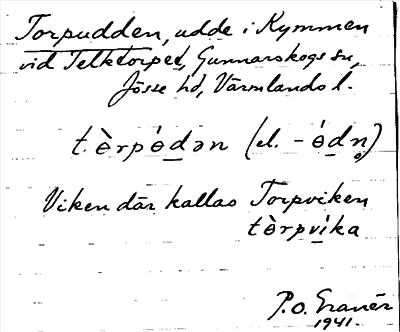 Torpudden, udde i Kymmen
vid Telktorpet, Gunnarskogs sn,
Jösse hd, Värmlands l.
t.èrpó̱dən (el. -ó̱dn̥)
Viken där kallas Torpviken
tèrpvíka
P.O. Granér
1941.